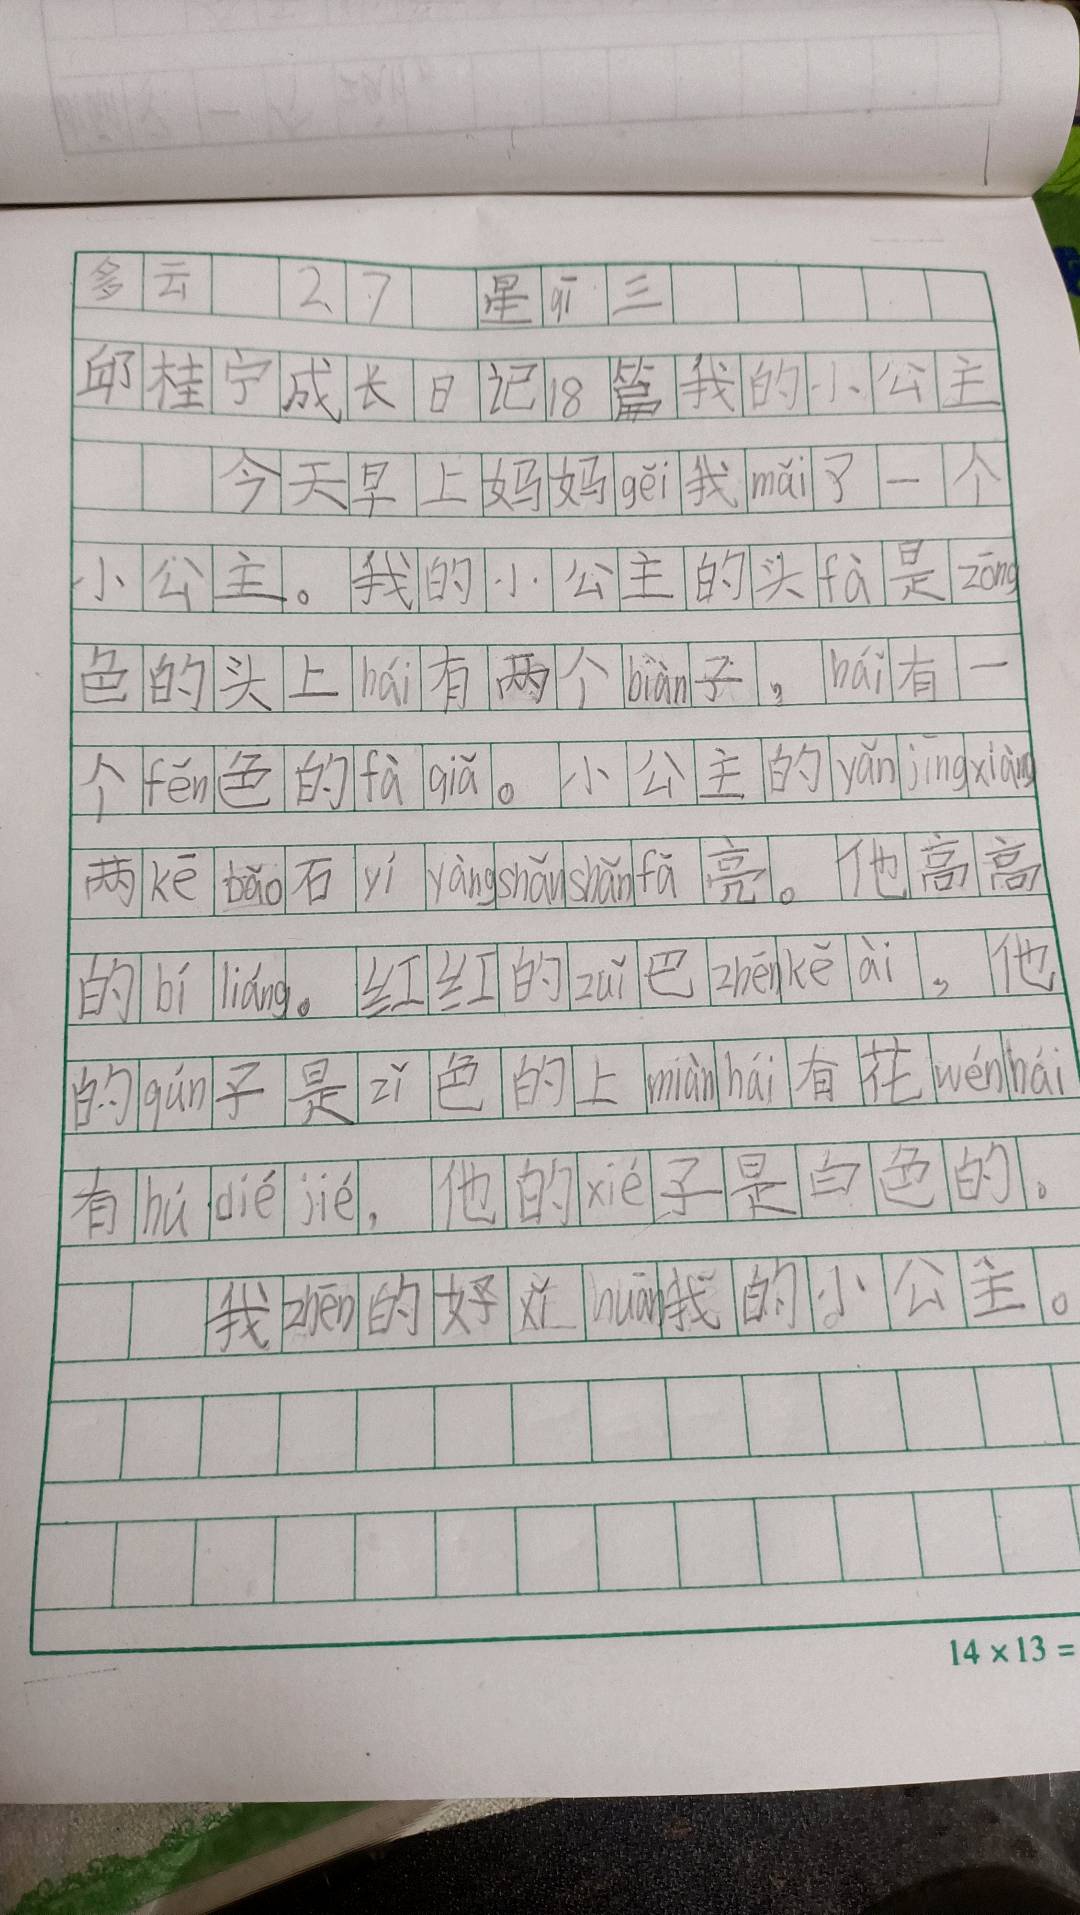 多云 27 星qī三
邱桂宁成长日记18篇我的小公主
今天早上妈妈gěi我mǎi了一个
小公主。我的小公主的头fà是zōng
色的头上hái有两个biàn子，hái有一
个fěn色的fà qiǎ。小公主的yǎn jīng xiàng
两kē bǎo石yí yàng shǎn shǎn fā亮。他高高
的bí liáng。红红的zuǐ巴zhēn kě ài，他
的qún子是zǐ色的上miàn hái有花wén hái
有hú dié jié，他的xié子是白色的。
我zhēn的好xǐ huān我的小公主。
14×13=